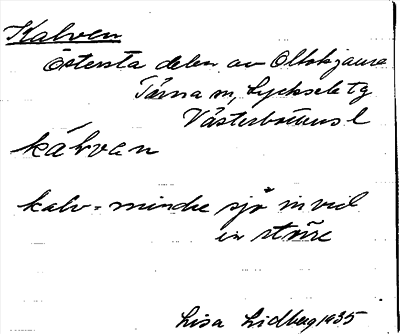 Kalven
Östersta delen av Oltokjaure
Tärna sn, Lycksele tg
Västerbottens l
kálvan
kalv = mindre sjö invid
en större
Lisa Lidberg 1935